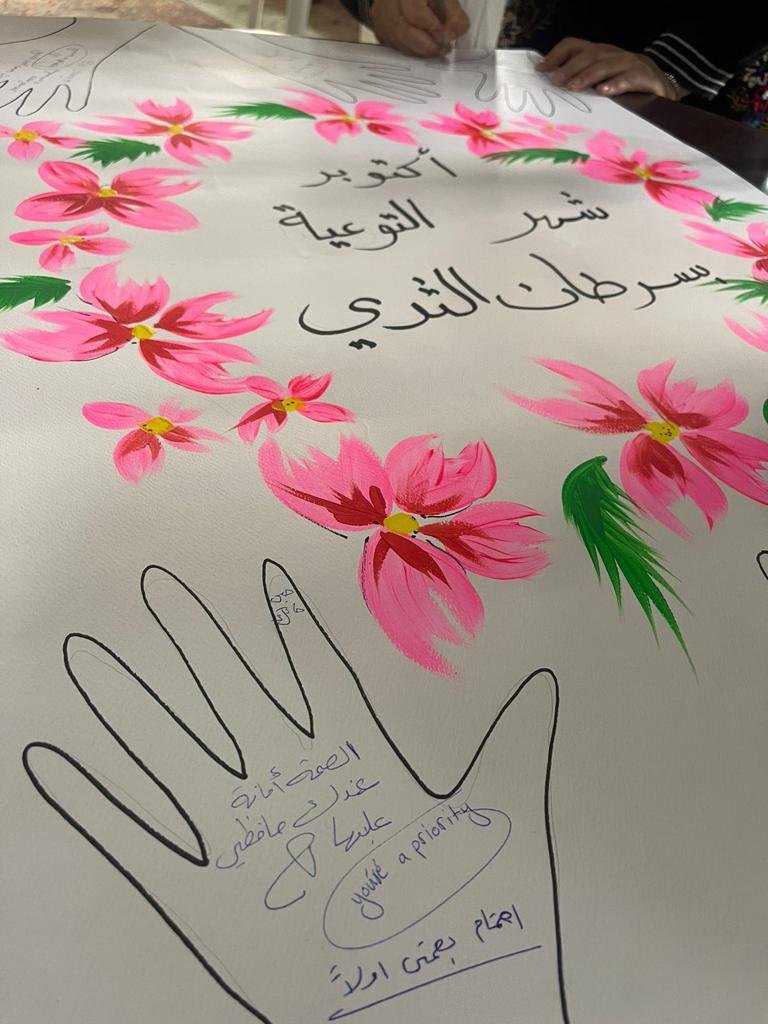 أكتوبر
شهر التوعية
بسرطان الثدي
الصحة أمانة
عندك حافظي
عليها
you're a priority
اهتمام بصحتي اولاً